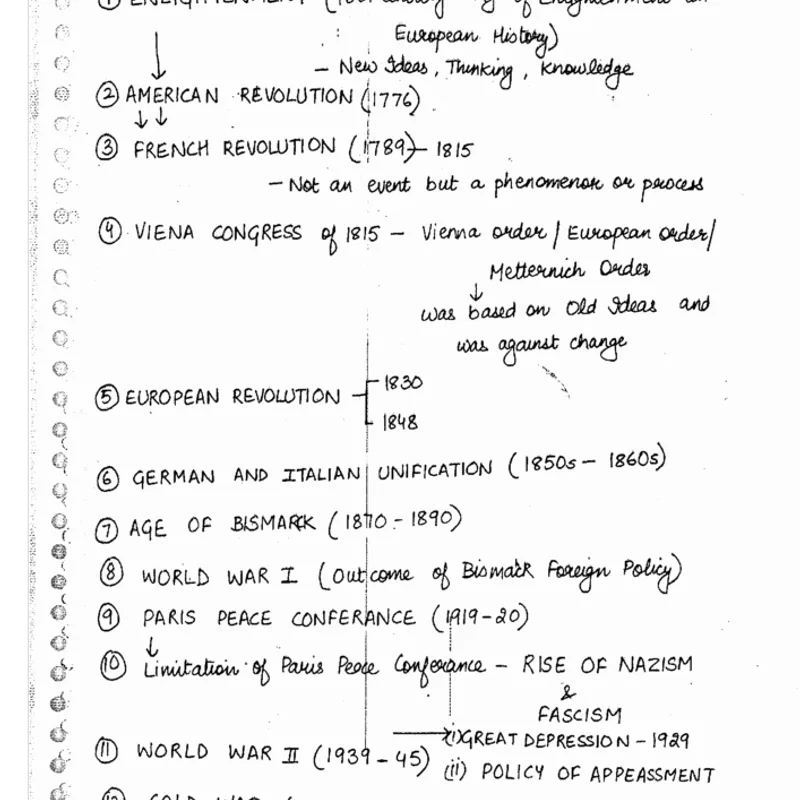 ① ENLIGHTENMENT
European History)
- New Ideas, Thinking, Knowledge
② AMERICAN REVOLUTION (1776)
③ FRENCH REVOLUTION (1789) - 1815
- Not an event but a phenomenon or process
④ VIENA CONGRESS of 1815 - Vienna order / European order/
Metternich Order
was based on Old Ideas and
was against change
⑤ EUROPEAN REVOLUTION
1830
1848
⑥ GERMAN AND ITALIAN UNIFICATION (1850s - 1860s)
⑦ AGE OF BISMARCK (1870 - 1890)
⑧ WORLD WAR I (Outcome of Bismark Foreign Policy)
⑨ PARIS PEACE CONFERANCE (1919-20)
⑩ Limitation of Paris Peace Conferance - RISE OF NAZISM
&
FASCISM
⑪ WORLD WAR II (1939-45) (i) GREAT DEPRESSION - 1929
(ii) POLICY OF APPEASSMENT